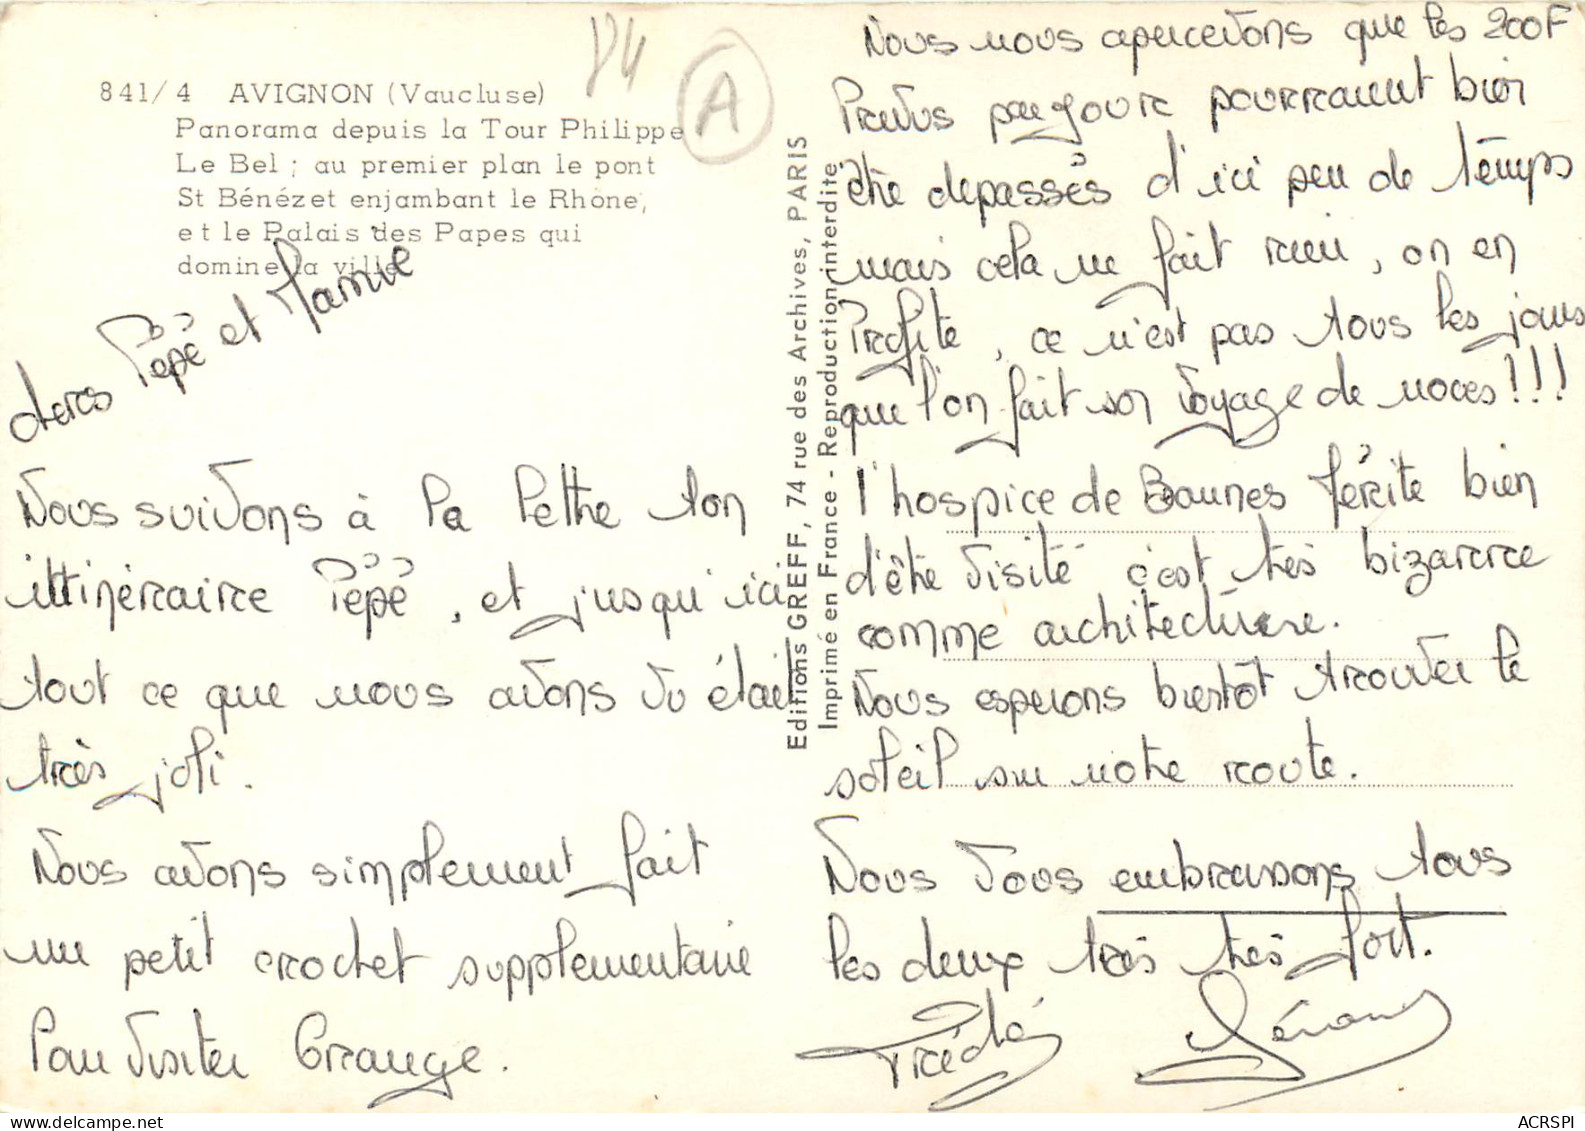 84
A
841/4 AVIGNON (Vaucluse)
Panorama depuis la Tour Philippe
Le Bel ; au premier plan le pont
St Bénézet enjambant le Rhône,
et le Palais des Papes qui
domine la ville
chers Pépé et Mamie
Nous suivons à la lettre ton
ittinéraire Pépé, et jusqu'ici
tout ce que nous avons vu était
très joli.
Nous avons simplement fait
un petit crochet supplémentaire
Pour visiter Orange.
Editions GREFF, 74 rue des Archives, PARIS
Imprimé en France - Reproduction interdite
Nous nous apercevons que les 200F
Prévus par jour pourraient bien
être dépassés d'ici peu de temps
mais cela ne fait rien, on en
Profite, ce n'est pas tous les jours
que l'on fait son voyage de noces!!!
l'hospice de Baunes mérite bien
d'être visité c'est très bizarre
comme architecture.
Nous esperons bientôt trouver le
soleil sur notre route.
Nous vous embrassons tous
les deux très très fort.
ACRSPI